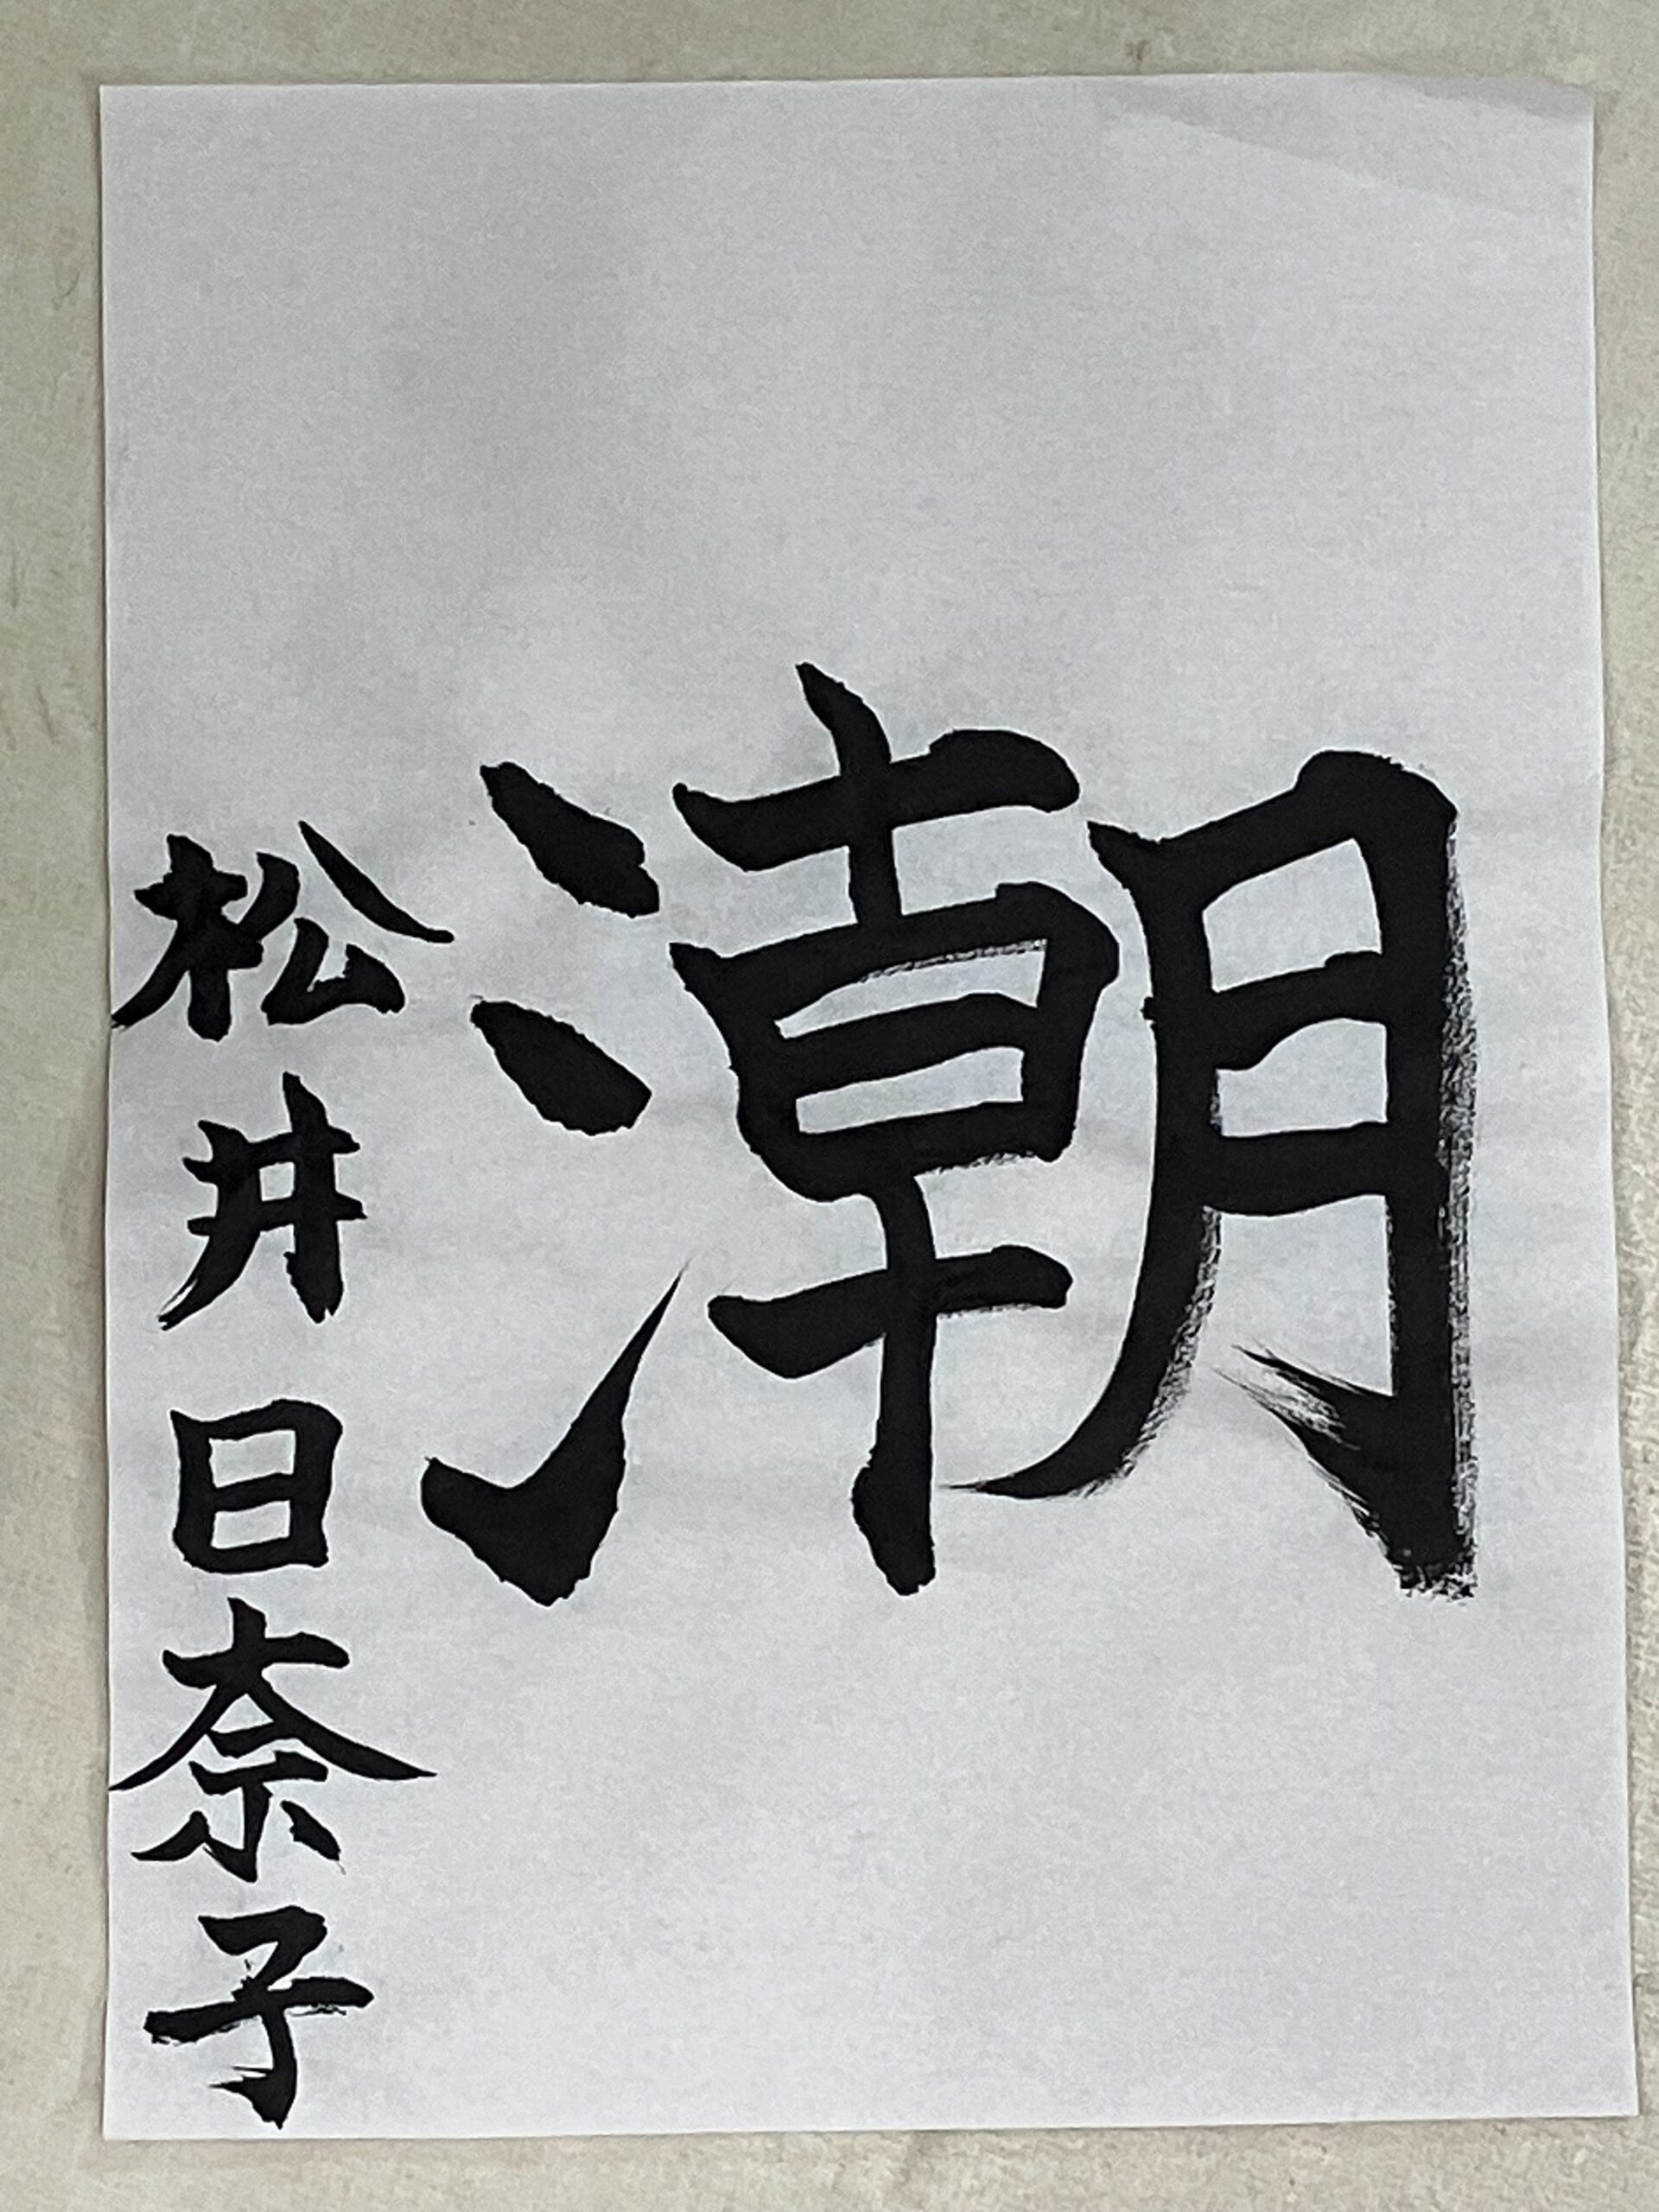 潮
松井日奈子